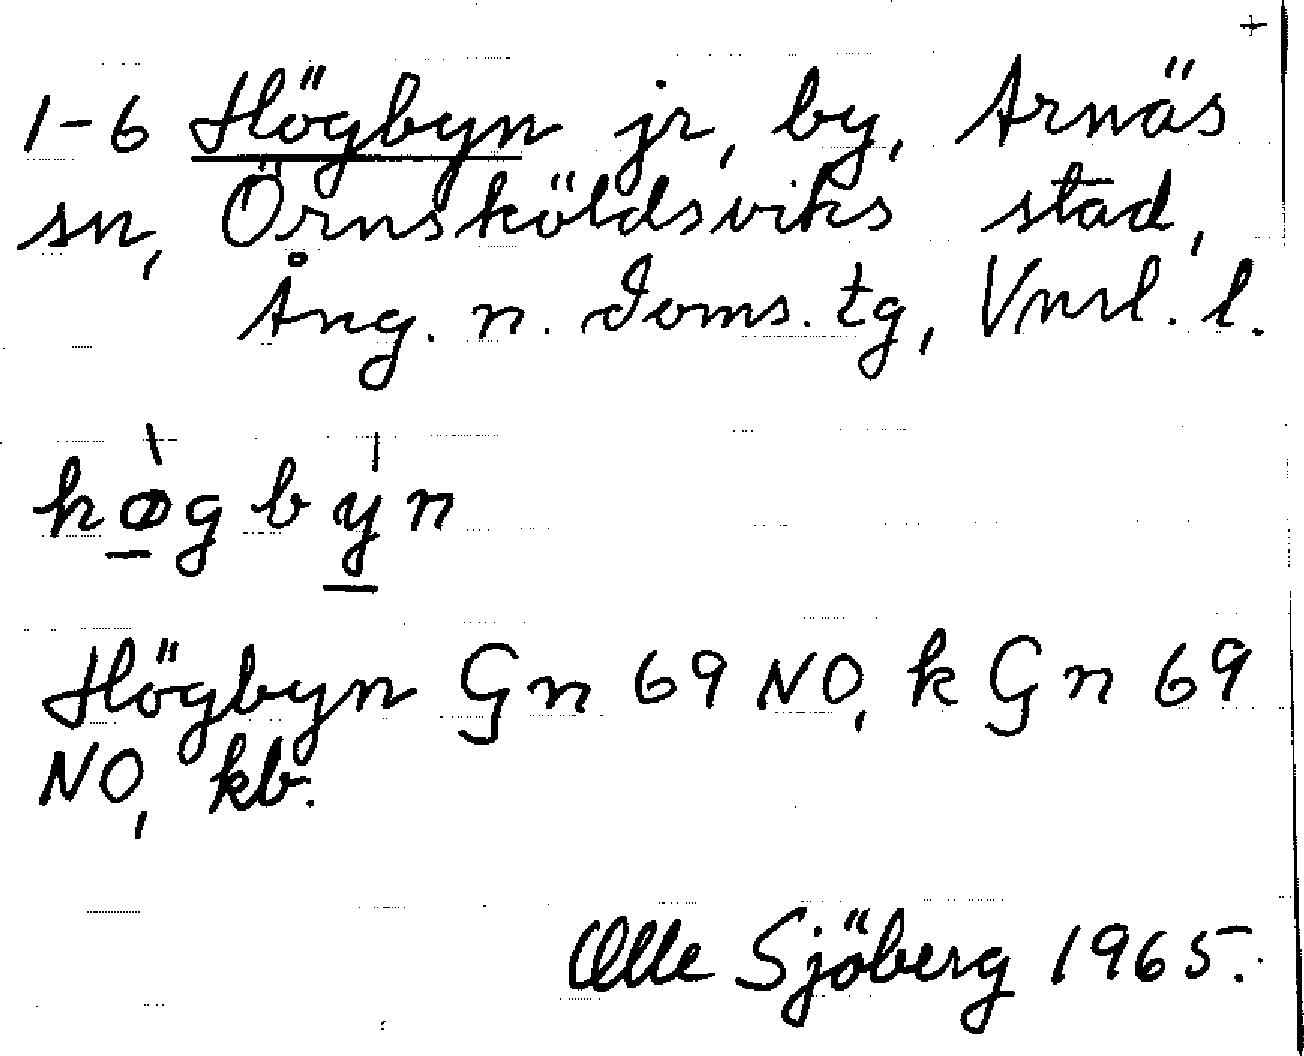 +
1-6 Högbyn jr, by, Arnäs
sn, Örnsköldsviks stad,
Ång. n. doms. tg, Vnrl. l.
hø̀gbýn
Högbyn Gn 69 NO, k Gn 69
NO, kb.
Olle Sjöberg 1965.